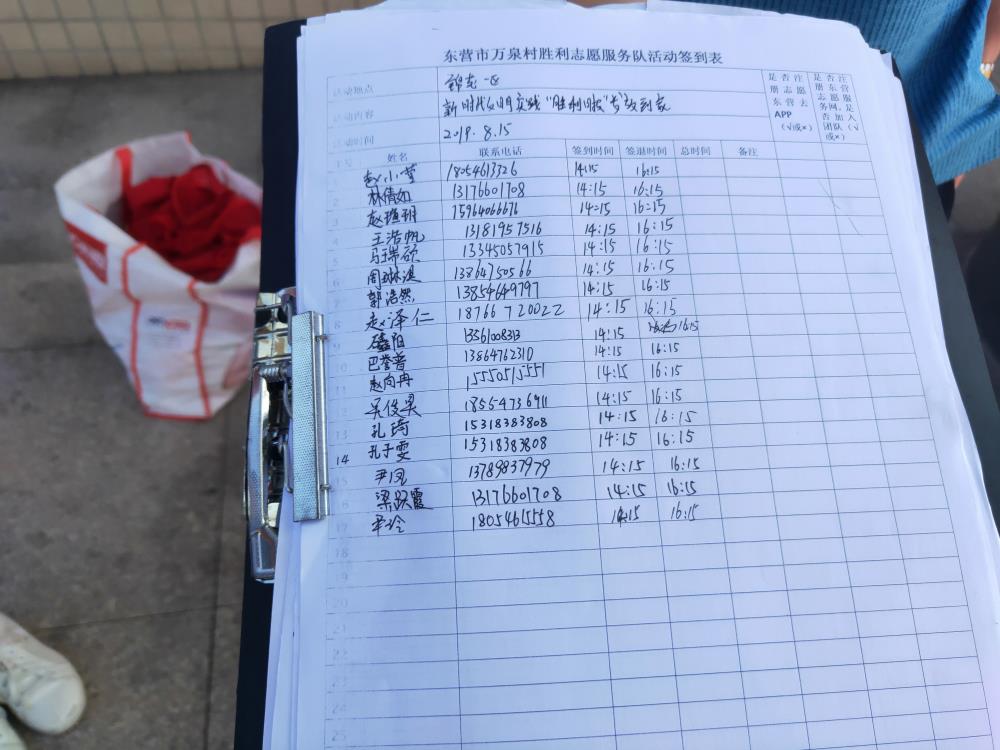 东营市万泉村胜利志愿服务队活动签到表
活动地点 一区
活动内容 新时代文明实践"胜利
活动时间 2019.8.15
是否注册志愿东营去APP（√或×）
是否注册东营志愿服务网，是否加入团队（√或×）
姓名 联系电话 签到时间 签退时间 总时间 备注
赵小莹 18054613326 14:15 16:15
2 林倩如 13176601708 14:15 16:15
3 15964066676 14:15 16:15
4 王浩帆 13181957516 14:15 16:15
5 马瑞硕 13345057915 14:15 16:15
6 周琳淇 14:15 16:15
7 郭浩然 13854649797 14:15 16:15
8 赵泽仁 18766720022 14:15 16:15
9 13561008313 14:15 16:15
10 巴誉普 13864762310 14:15 16:15
11 赵向冉 15550515551 14:15 16:15
12 吴俊昊 18554736911 14:15 16:15
13 孔琦 15318383808 14:15 16:15
14 孔子雯 15318383808 14:15 16:15
15 尹凤 13789837979 14:15 16:15
16 梁跃霞 13176601708 14:15 16:15
17 18054615558 14:15 16:15
18
19
20
21
22
23
24
25